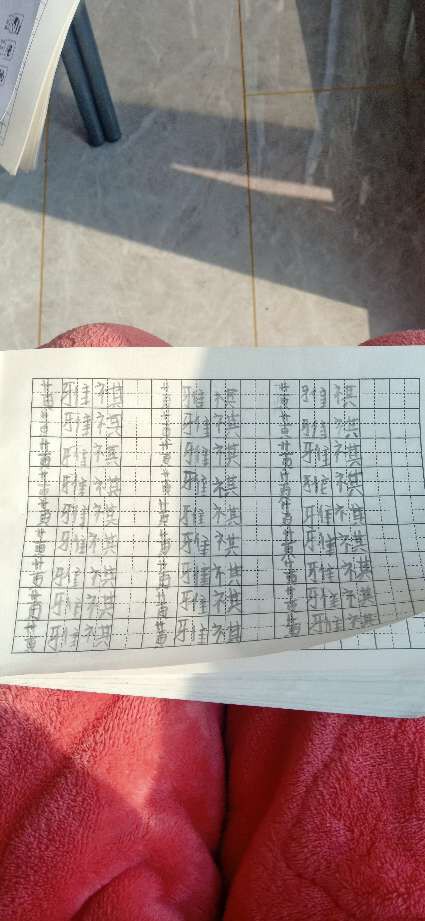 黄雅祺 黄雅祺 黄雅祺
黄雅祺 黄雅祺 黄雅祺
黄雅祺 黄雅祺 黄雅祺
黄雅祺 黄雅祺 黄雅祺
黄雅祺 黄雅祺 黄雅祺
黄雅祺 黄雅祺 黄雅祺
黄雅祺 黄雅祺 黄雅祺
黄雅祺 黄雅祺 黄雅祺
黄雅祺 黄雅祺 黄雅祺